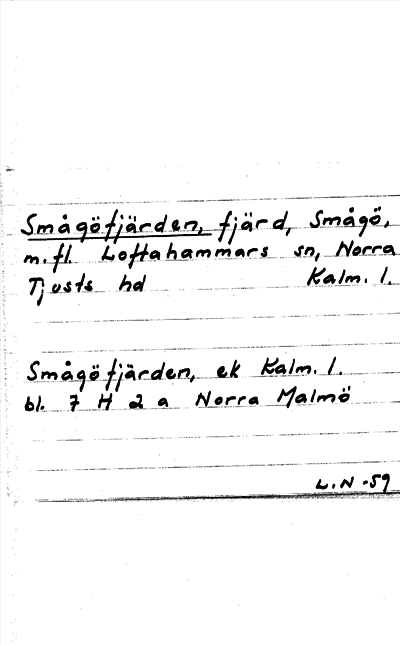 Smågöfjärden, fjärd, Smågö,
m.fl. Loftahammars sn, Norra
Tjusts hd Kalm. l.
Smågöfjärden, ek Kalm. l.
bl. 7 H 2 a Norra Malmö
L.N -59